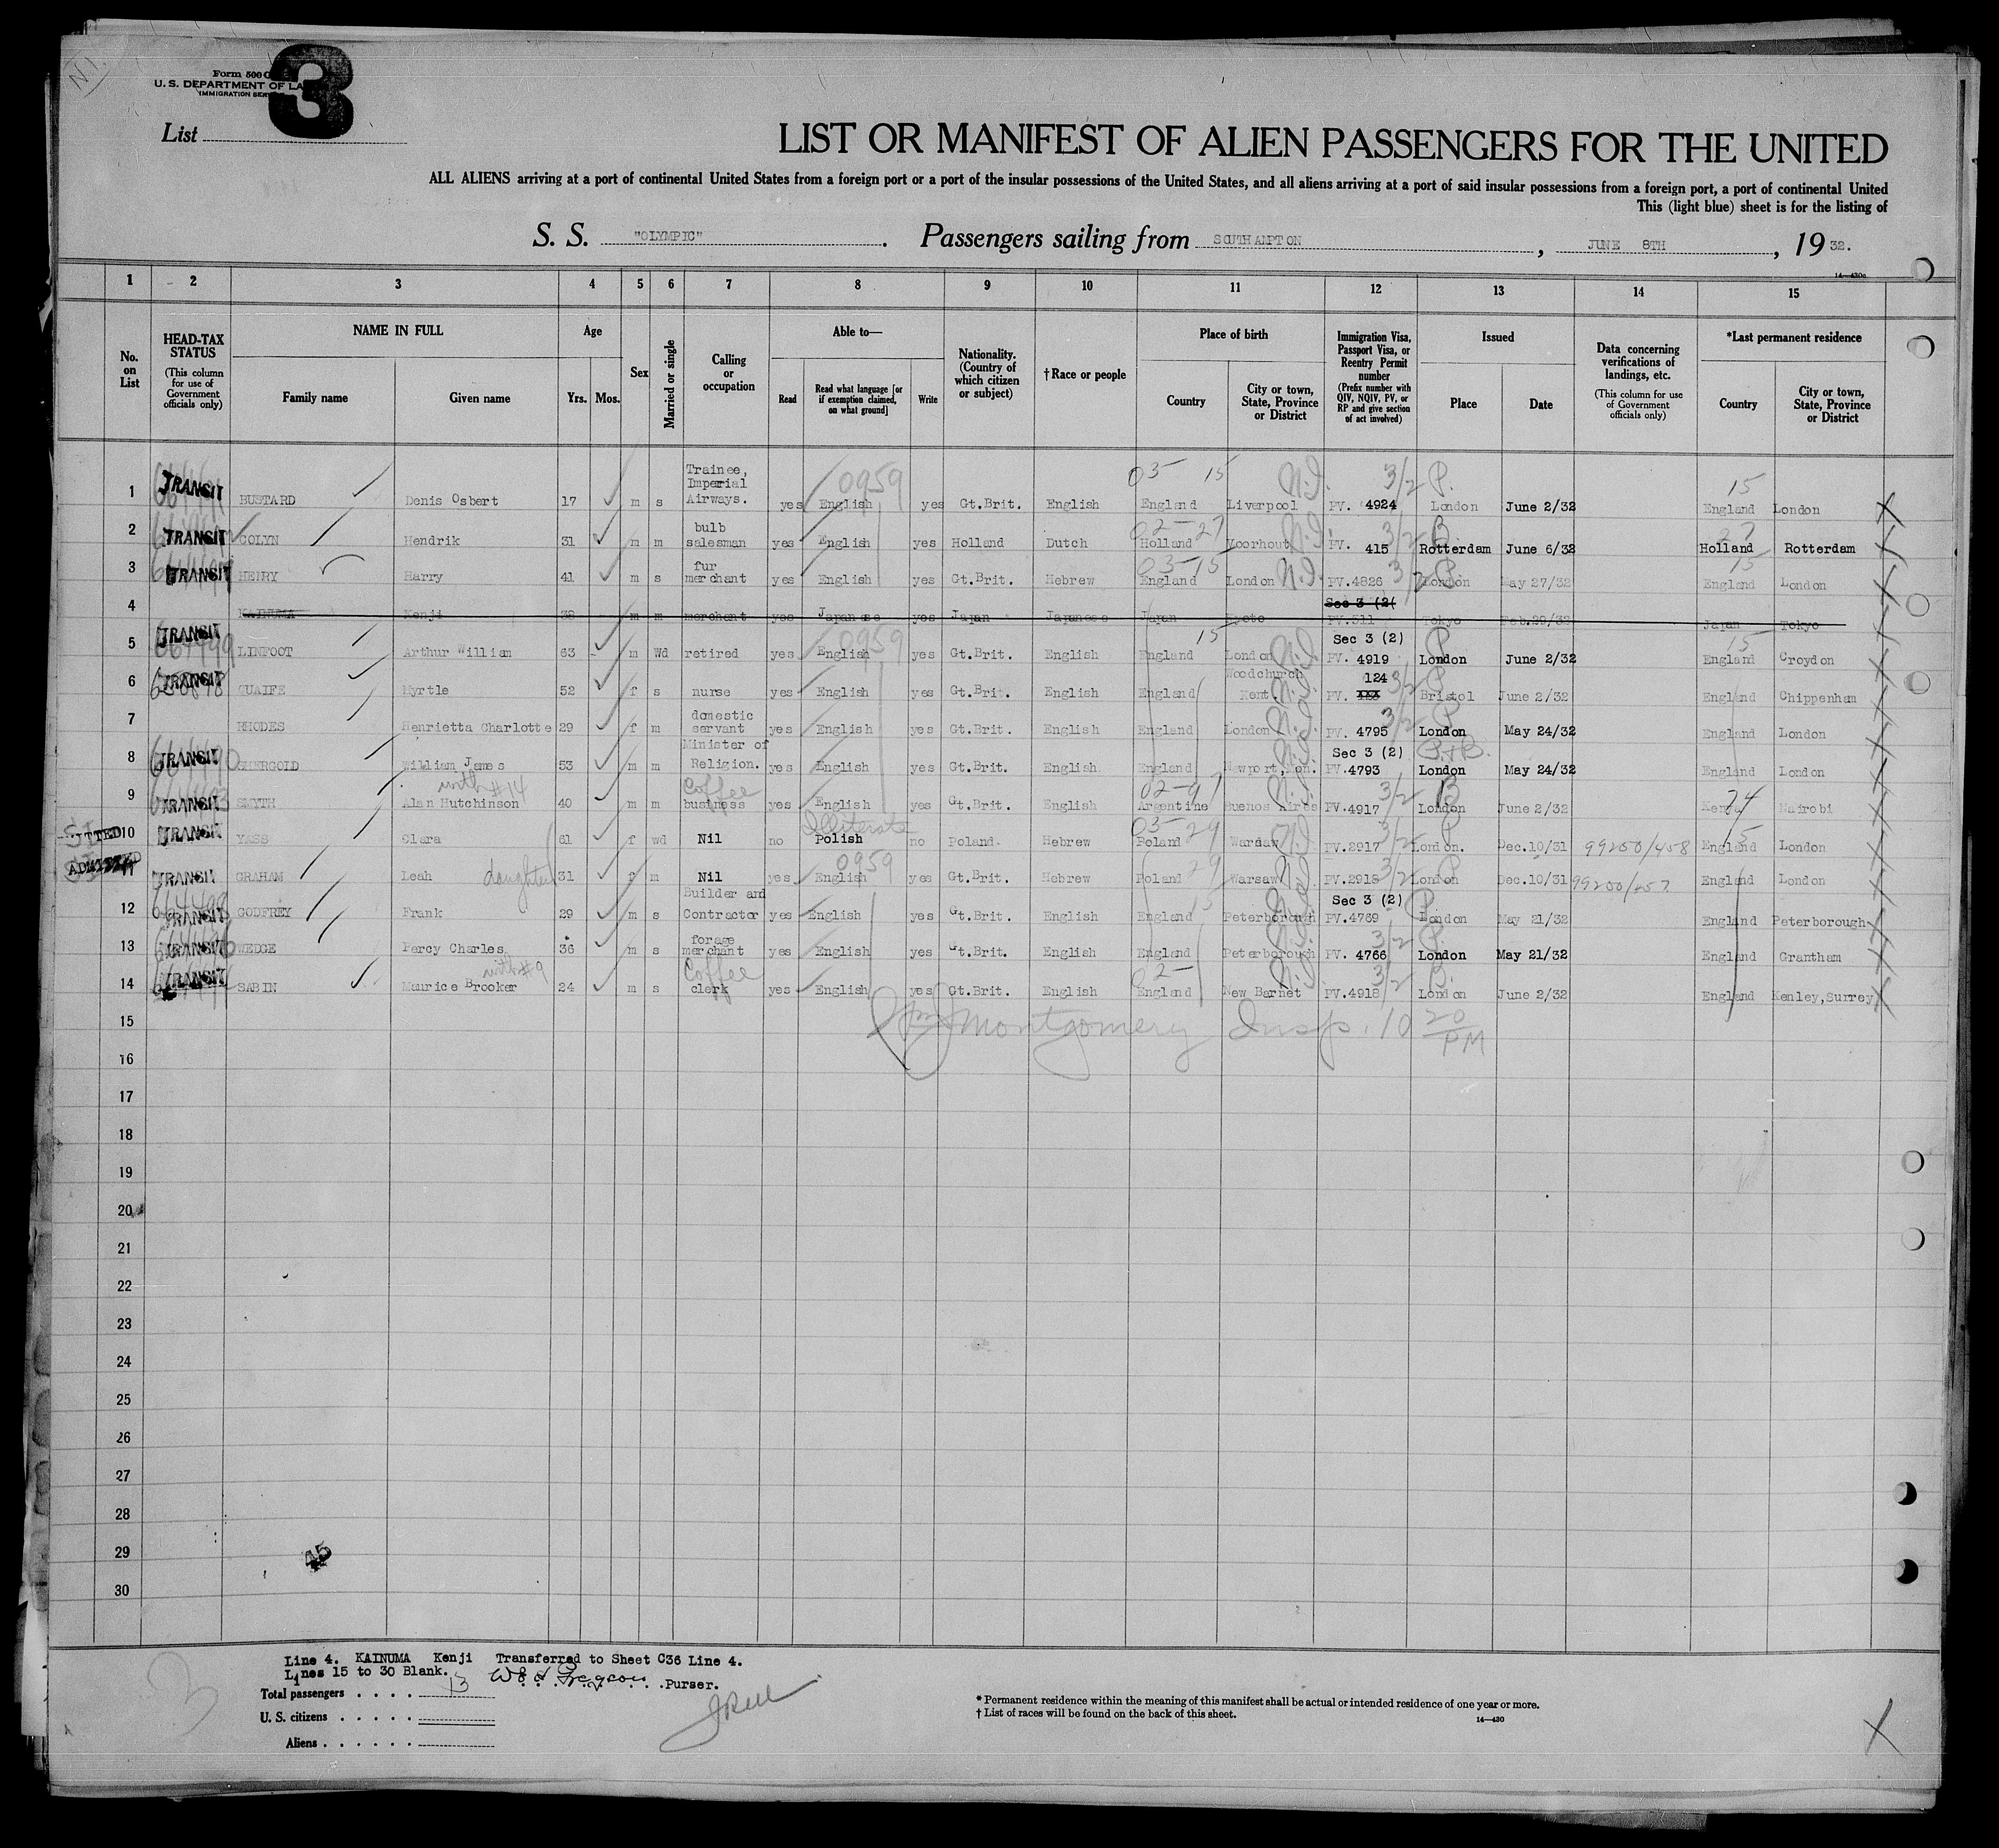 N1.
3
Form 500
U. S. DEPARTMENT OF LA
IMMIGRATION SER
List
LIST OR MANIFEST OF ALIEN PASSENGERS FOR THE UNITED
ALL ALIENS arriving at a port of continental United States from a foreign port or a port of the insular possessions of the United States, and all aliens arriving at a port of said insular possessions from a foreign port, a port of continental United
This (light blue) sheet is for the listing of
S. S. "OLYMPIC". Passengers sailing from SOUTHAMPTON, JUNE 8TH, 1932.
1 2 3 4 5 6 7 8 9 10 11 12 13 14 15
No. on List
HEAD-TAX STATUS (This column for use of Government officials only)
NAME IN FULL Family name Given name
Age Yrs. Mos.
Sex
Married or single
Calling or occupation
Able to— Read Read what language [or if exemption claimed, on what ground] Write
Nationality. (Country of which citizen or subject)
†Race or people
Place of birth Country City or town, State, Province or District
Immigration Visa, Passport Visa, or Reentry Permit number (Prefix number with QIV, NQIV, PV, or RP and give section of act involved)
Issued Place Date
Data concerning verifications of landings, etc. (This column for use of Government officials only)
*Last permanent residence Country City or town, State, Province or District
1 TRANSIT BUSTARD Denis Osbert 17 m s Trainee, Imperial Airways. yes English 0959 yes Gt.Brit. English England 03 15 Liverpool N.I. PV. 4924 3/2 P. London June 2/32 England 15 London
2 TRANSIT COLYN Hendrik 31 m m bulb salesman yes English yes Holland Dutch Holland 02-27 Voorhout N.I. PV. 415 3/2 B Rotterdam June 6/32 Holland 27 Rotterdam
3 TRANSIT HENRY Harry 41 m s fur merchant yes English yes Gt.Brit. Hebrew England 03-15 London N.I. PV.4826 3/2 P. London May 27/32 England 15 London
4 KAINUMA Kenji 38 m m merchant yes Japanese yes Japan Japanese Japan Sec 3 (2( PV.311 Tokyo Feb.29/32 Japan Tokyo
5 TRANSIT LINFOOT Arthur William 63 m Wd retired yes English 0959 yes Gt.Brit. English England 15 London N.I. Sec 3 (2) PV. 4919 P. London June 2/32 England 15 Croydon
6 TRANSIT QUAIFE Myrtle 52 f s nurse yes English yes Gt.Brit. English England Woodchurch Kent. N.I. 124 PV. XXX 3/2 P Bristol June 2/32 England Chippenham
7 RHODES Henrietta Charlotte 29 f m domestic servant yes English yes Gt.Brit. English England London N.I. PV. 4795 3/2 P London May 24/32 England London
8 TRANSIT SHERGOLD William James 53 m m Minister of Religion. yes English yes Gt.Brit. English England Newport, Mon. N.I. Sec 3 (2) PV.4793 P.+B. London May 24/32 England London
9 TRANSIT SMYTH Alan Hutchinson with #14 40 m m Coffee business yes English yes Gt.Brit. English Argentine 02-97 Buenos Aires N.I. PV.4917 3/2 B London June 2/32 Kenya 24 Nairobi
10 TRANSIT YASS Clara 61 f wd Nil no Illiterate Polish no Poland. Hebrew Poland 03 29 Warsaw N.I. PV.2917 3/2 P London. Dec.10/31 99250/458 England 15 London
ADMITTED 11 TRANSIT GRAHAM Leah daughter 31 f m Nil yes English 0959 yes Gt.Brit. Hebrew Poland 29 Warsaw PV.2918 3/2 London Dec.10/31 99200/257 England London
12 TRANSIT GODFREY Frank 29 m s Builder and Contractor yes English yes Gt.Brit. English England 15 Peterborough Sec 3 (2) PV.4769 P London May 21/32 England Peterborough
13 TRANSIT WEDGE Percy Charles 36 m s forage merchant yes English yes Gt.Brit. English England Peterborough PV. 4766 3/2 P. London May 21/32 England Grantham
14 TRANSIT SABIN Maurice Brooker with #9 24 m s Coffee clerk yes English yes Gt.Brit. English England 02- New Barnet N.I. PV.4918 3/2 B. London June 2/32 England Kenley,Surrey
15 Montgomery Insp. 10 20 PM
16
17
18
19
20
21
22
23
24
25
26
27
28
29
30
45
Line 4. KAINUMA Kenji Transferred to Sheet C36 Line 4.
Lines 15 to 30 Blank.
Purser.
Total passengers . . . . 13
U. S. citizens . . . . .
Aliens . . . . . .
* Permanent residence within the meaning of this manifest shall be actual or intended residence of one year or more.
† List of races will be found on the back of this sheet.
14—430